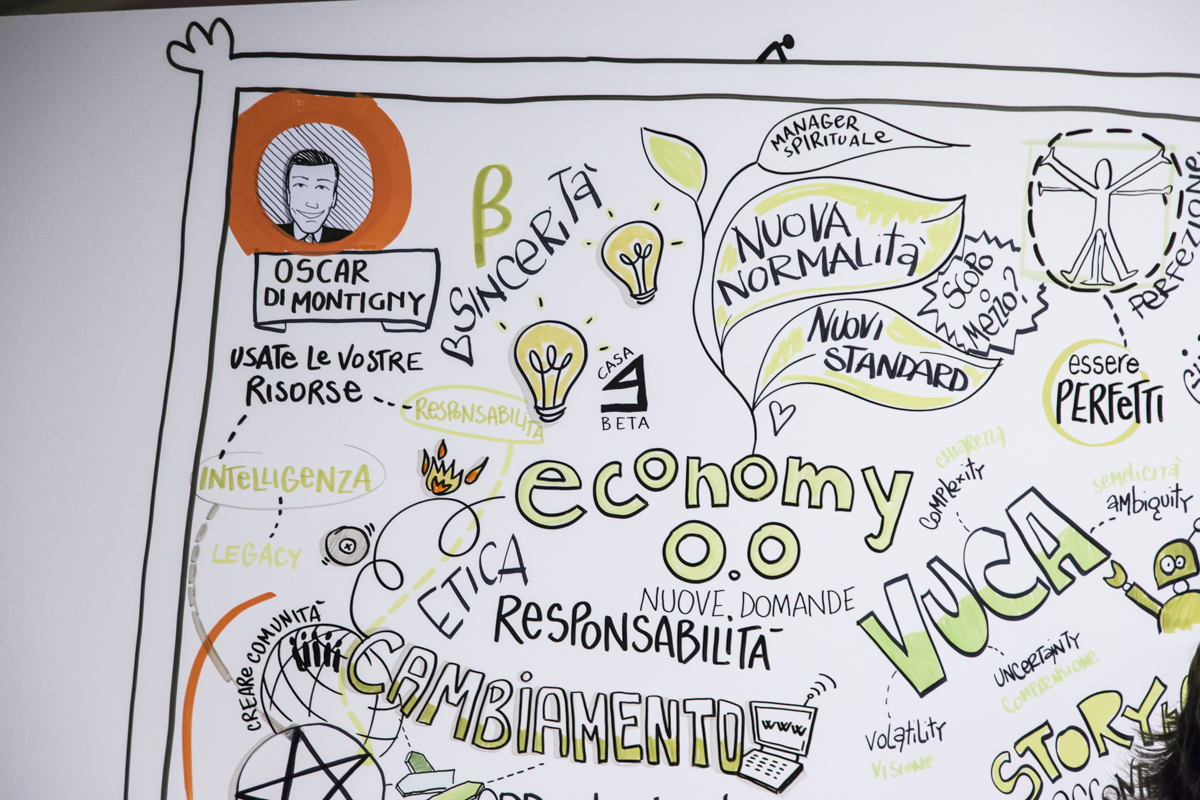 OSCAR
DI MONTIGNY
USATE LE VOSTRE
RISORSE
RESPONSABILITÀ
INTELLIGENZA
LEGACY
CREARE COMUNITÀ
β
SINCERITÀ
CASA
BETA
MANAGER
SPIRITUALE
NUOVA
NORMALITÀ
NUOVI
STANDARD
SCOPO
o
MEZZO?
essere
PERFETTI
economy
0.0
ETICA
NUOVE DOMANDE
RESPONSABILITÀ
CAMBIAMENTO
WWW
chiarezza
complexity
semplicità
ambiguity
VUCA
uncertainty
comprensione
volatility
visione
STORY